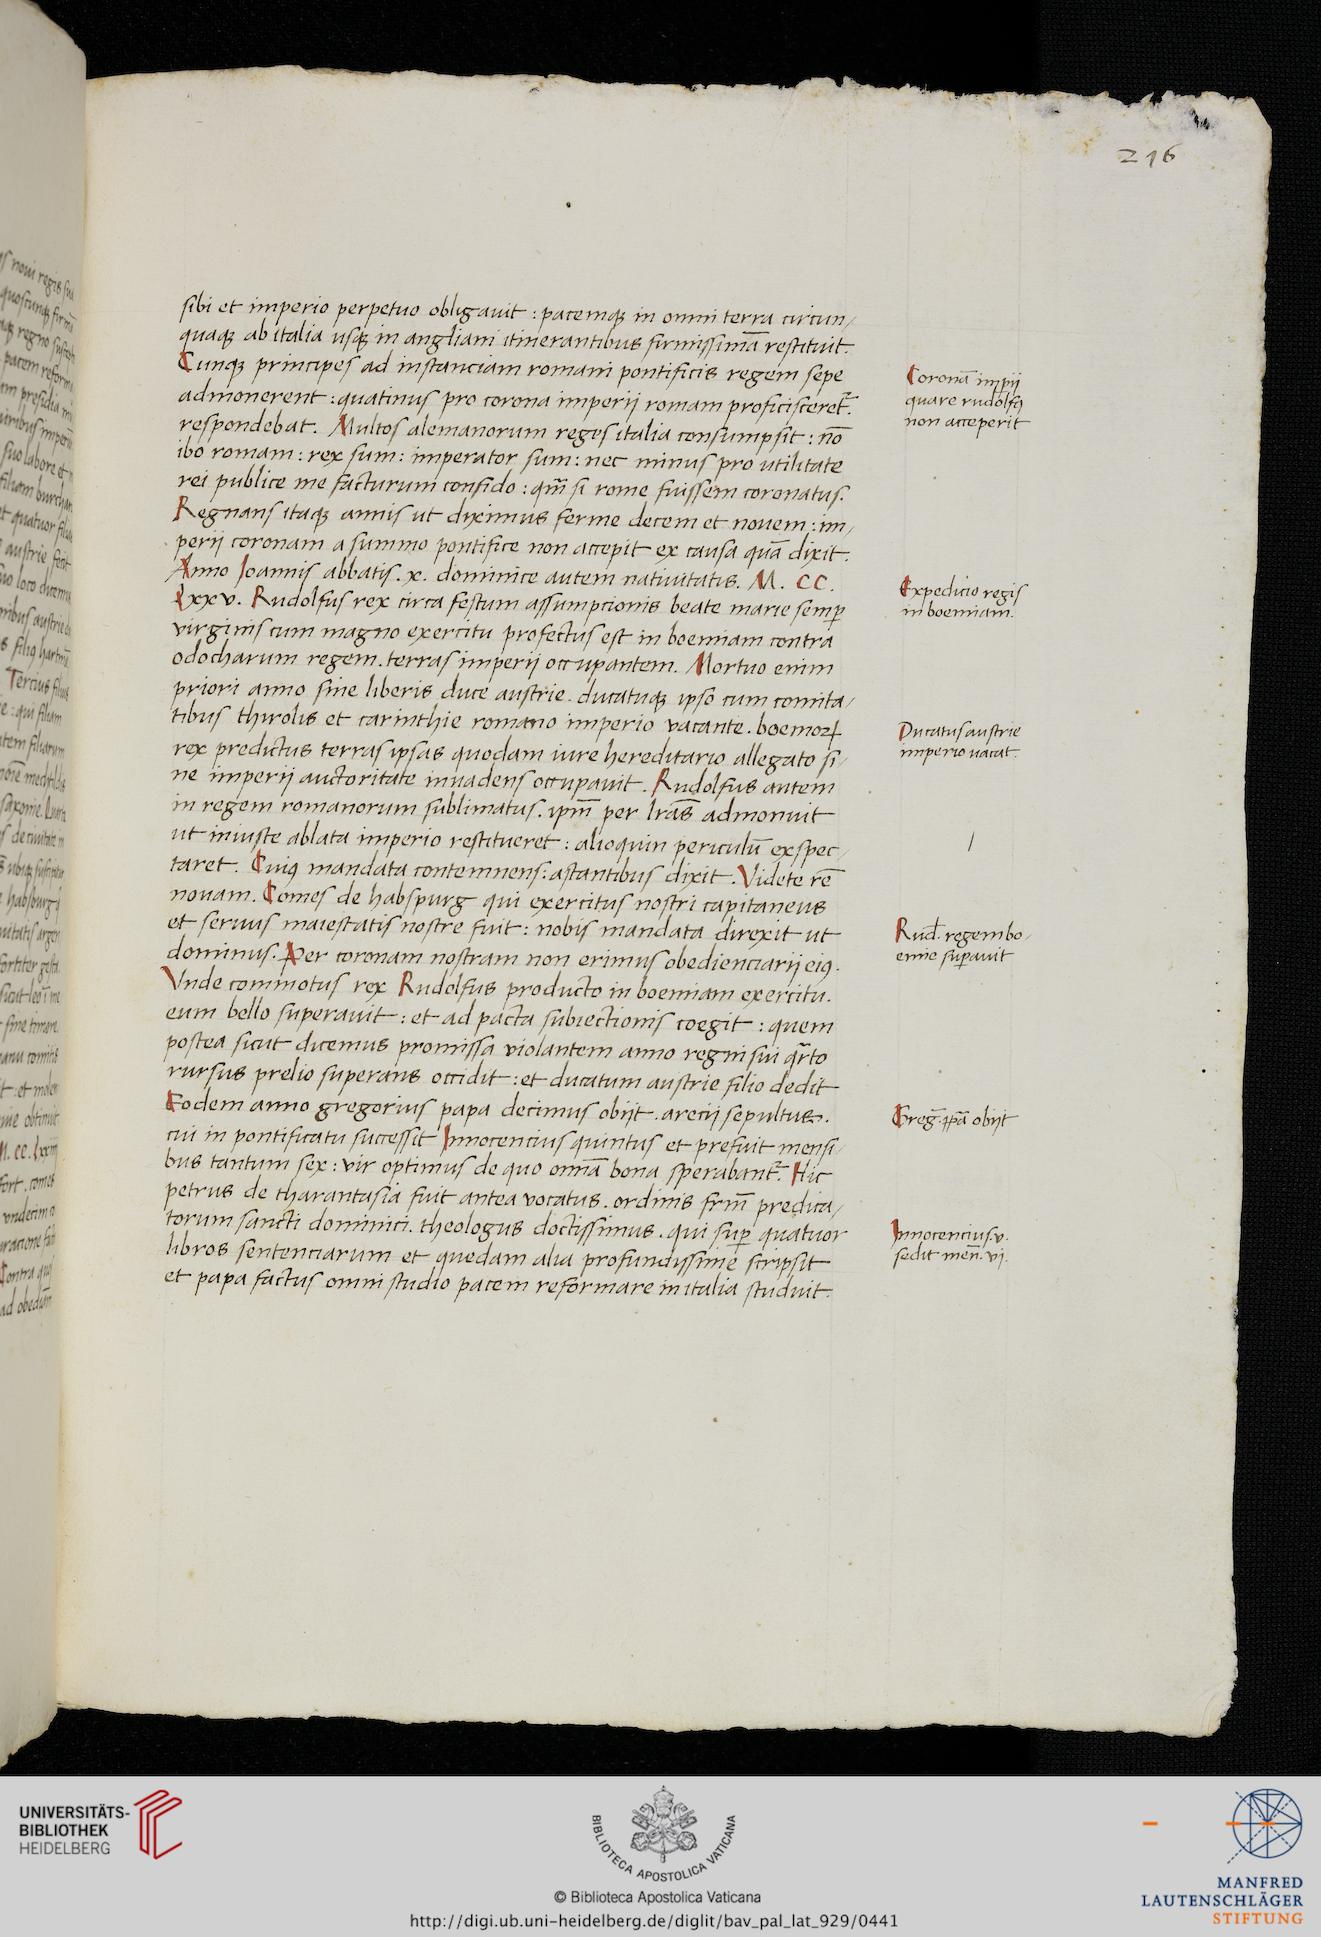 216
sibi et imperio perpetuo obligauit : pacemqꝫ in omni terra circun/
quaqꝫ ab italia vsqꝫ in angliam itinerantibus firmissimā restituit.
Cunqꝫ principes ad instanciam romani pontificis regem sepe
admonerent : quatinus pro corona imperij romam proficisceret᷑.
respondebat. Multos alemanorum reges italia consumpsit : nō
ibo romam : rex sum : imperator sum : nec minus pro vtilitate
rei publice me facturum confido : qm̄ si rome fuissem coronatus.
Regnans itaqꝫ annis ut diximus ferme decem et nouem : im/
perii coronam a summo pontifice non accepit ex causa quā dixit.
Anno Joannis abbatis . x. dominice autem natiuitatis. M. CC.
Lxxv. Rudolfus rex circa festum assumpcionis beate marie semp̄
virginis cum magno exercitu profectus est in boemiam contra
odocharum regem . terras imperij occupantem. Mortuo enim
priori anno sine liberis duce austrie . ducatuqꝫ ipso cum comita/
tibus thirolis et carinthie romano imperio vacante . boemoꝝ
rex predictus terras ipsas quodam iure hereditario allegato si/
ne imperii auctoritate inuadens occupauit. Rudolfus autem
in regem romanorum sublimatus . ipm̄ per lrās admonuit
ut iniuste ablata imperio restitueret : alioquin periculū exspec/
taret. Cuiꝯ mandata contemnens : astantibus dixit. Videte rē
nouam. Comes de habspurg qui exercitus nostri capitaneus
et seruus maiestatis nostre fuit : nobis mandata direxit ut
dominus. Per coronam nostram non erimus obedienciarij eiꝯ.
Vnde commotus rex Rudolfus producto in boemiam exercitu.
eum bello superauit : et ad pacta subiectionis coegit : quem
postea sicut dicemus promissa violantem anno regni sui qrto
rursus prelio superans occidit : et ducatum austrie filio dedit
Eodem anno gregorius papa decimus obijt . arecii sepultus.
cui in pontificatu successit Innocencius quintus et prefuit mensi/
bus tantum sex : vir optimus de quo omīa bona sperabant᷑. Hic
petrus de tharantasia fuit antea vocatus . ordinis frm̄ predica/
torum sancti dominici . theologus doctissimus . qui sup̄ quatuor
libros sentenciarum et quedam alia profundissime scripsit
et papa factus omni studio pacem reformare in italia studuit.
Coronā imp̄ij
quare rudolfꝯ
non acceperit
Expedicio regis
in boemiam.
Ducatus austrie
imperio vacat.
Rud. regem bo/
emie sup̄auit
Greg. pp̄a obijt
Innocencius . v.
sedit men̄. vj.
UNIVERSITÄTS-
BIBLIOTHEK
HEIDELBERG
BIBLIOTECA APOSTOLICA VATICANA
© Biblioteca Apostolica Vaticana
http://digi.ub.uni-heidelberg.de/diglit/bav_pal_lat_929/0441
MANFRED
LAUTENSCHLÄGER
STIFTUNG